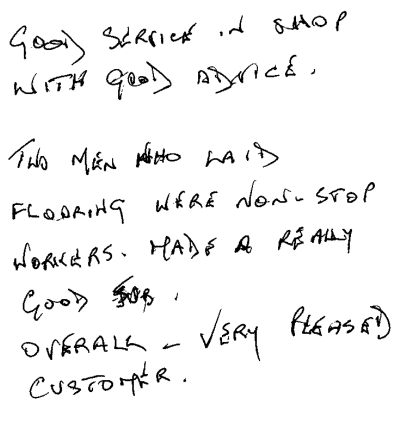 GOOD SERVICE IN SHOP
WITH GOOD ADVICE.
TWO MEN WHO LAID
FLOORING WERE NON-STOP
WORKERS. MADE A REALLY
GOOD JOB.
OVERALL - VERY PLEASED
CUSTOMER.